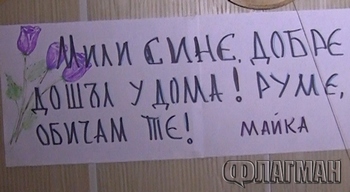 Мили СИНЕ, ДОБРЕ
ДОШЪЛ У ДОМА! РУМЕ,
ОБИЧАМ ТЕ! МАЙКА
ФЛАГМАН